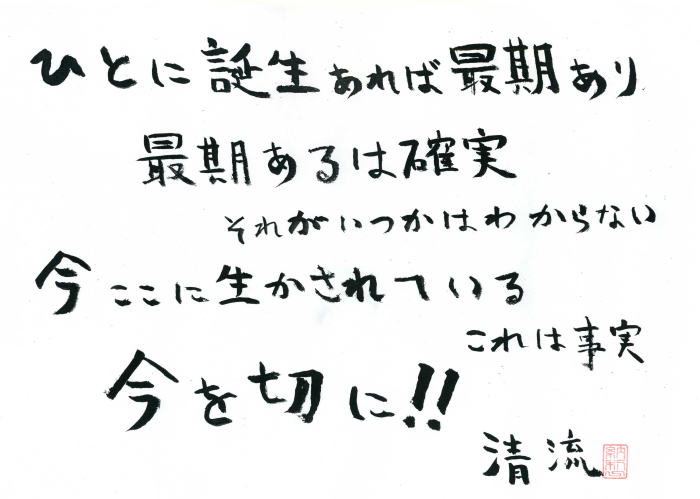 ひとに誕生あれば最期あり
最期あるは確実
それがいつかはわからない
今ここに生かされている
これは事実
今を切に!!
清流